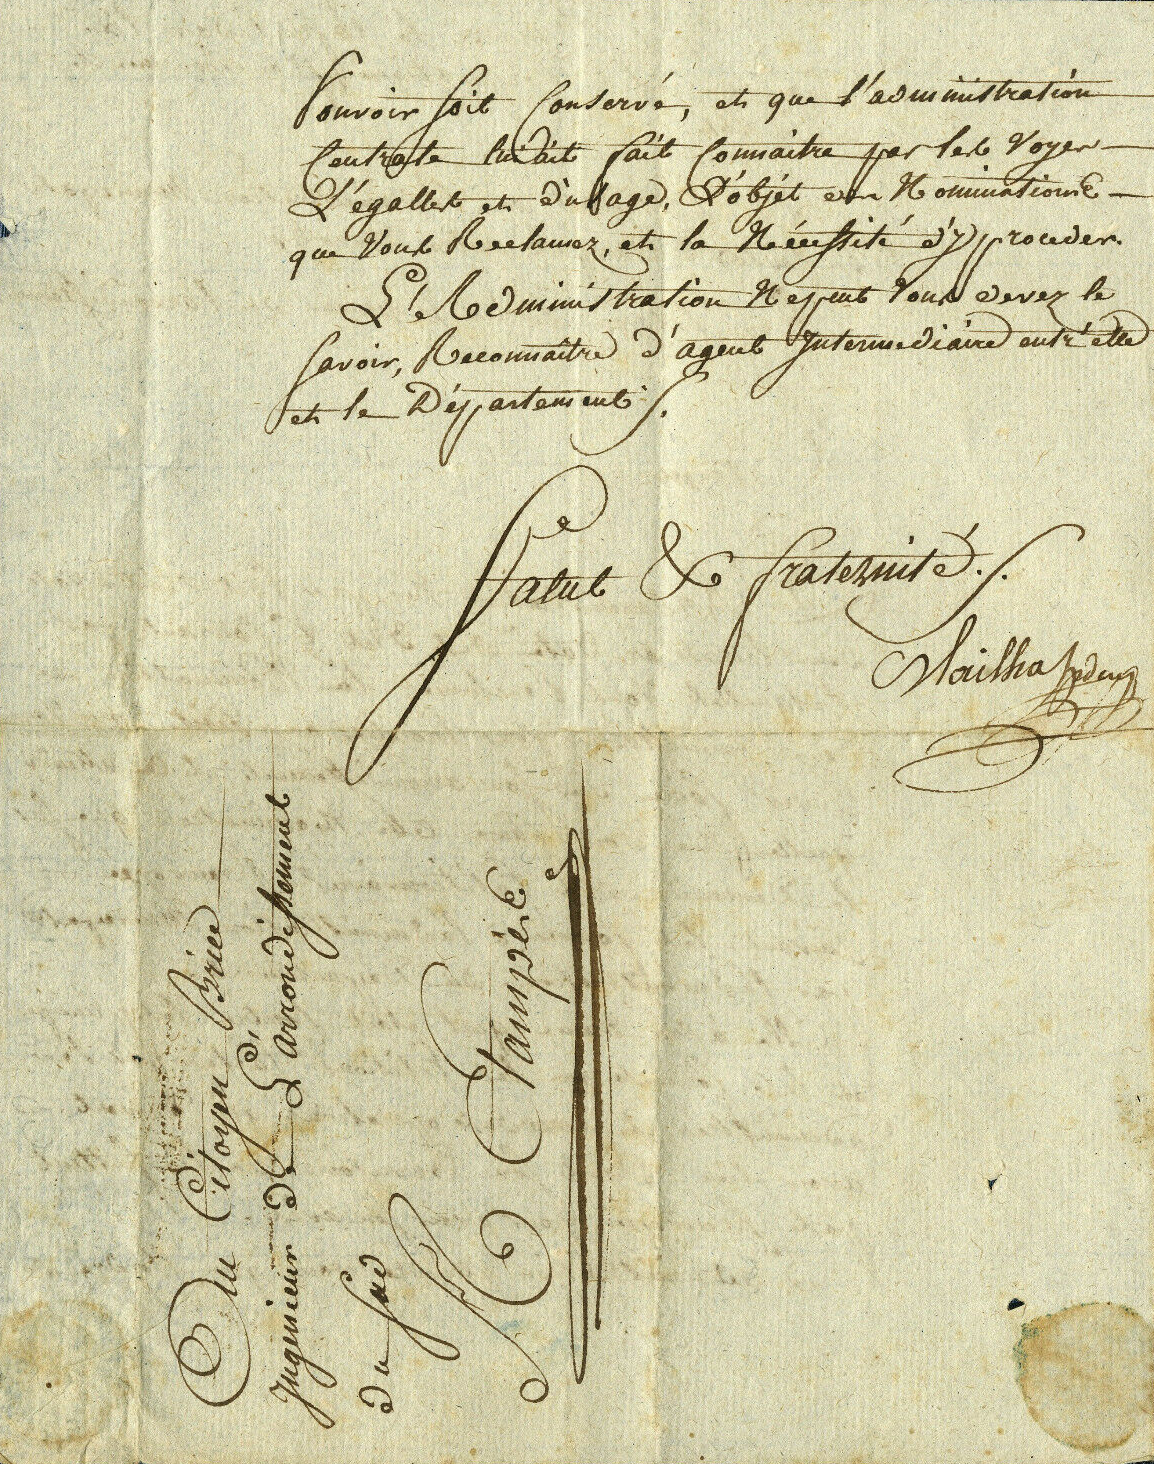 Pouvoir soit Conservé, et que l'administration
Centrale lui ait fait Connaitre par les Voyes
L'égalles et d'usage, L'objét des Nominations
que Vous Reclamez, et la Nécessité d'y proceder.
L'Administration Ne peut Vous devez le
savoir, Reconnaitre d'agent Intermediaire entr'elle
et le Départements.
Salut & fraternité.
Mailha
Au Citoyen Brice
Ingenieur de L'arrondissement
du Sud
A Etampes